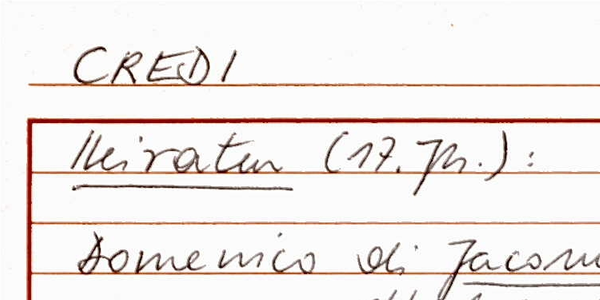 CREDI
Heiraten (17. Jh.):
Domenico di